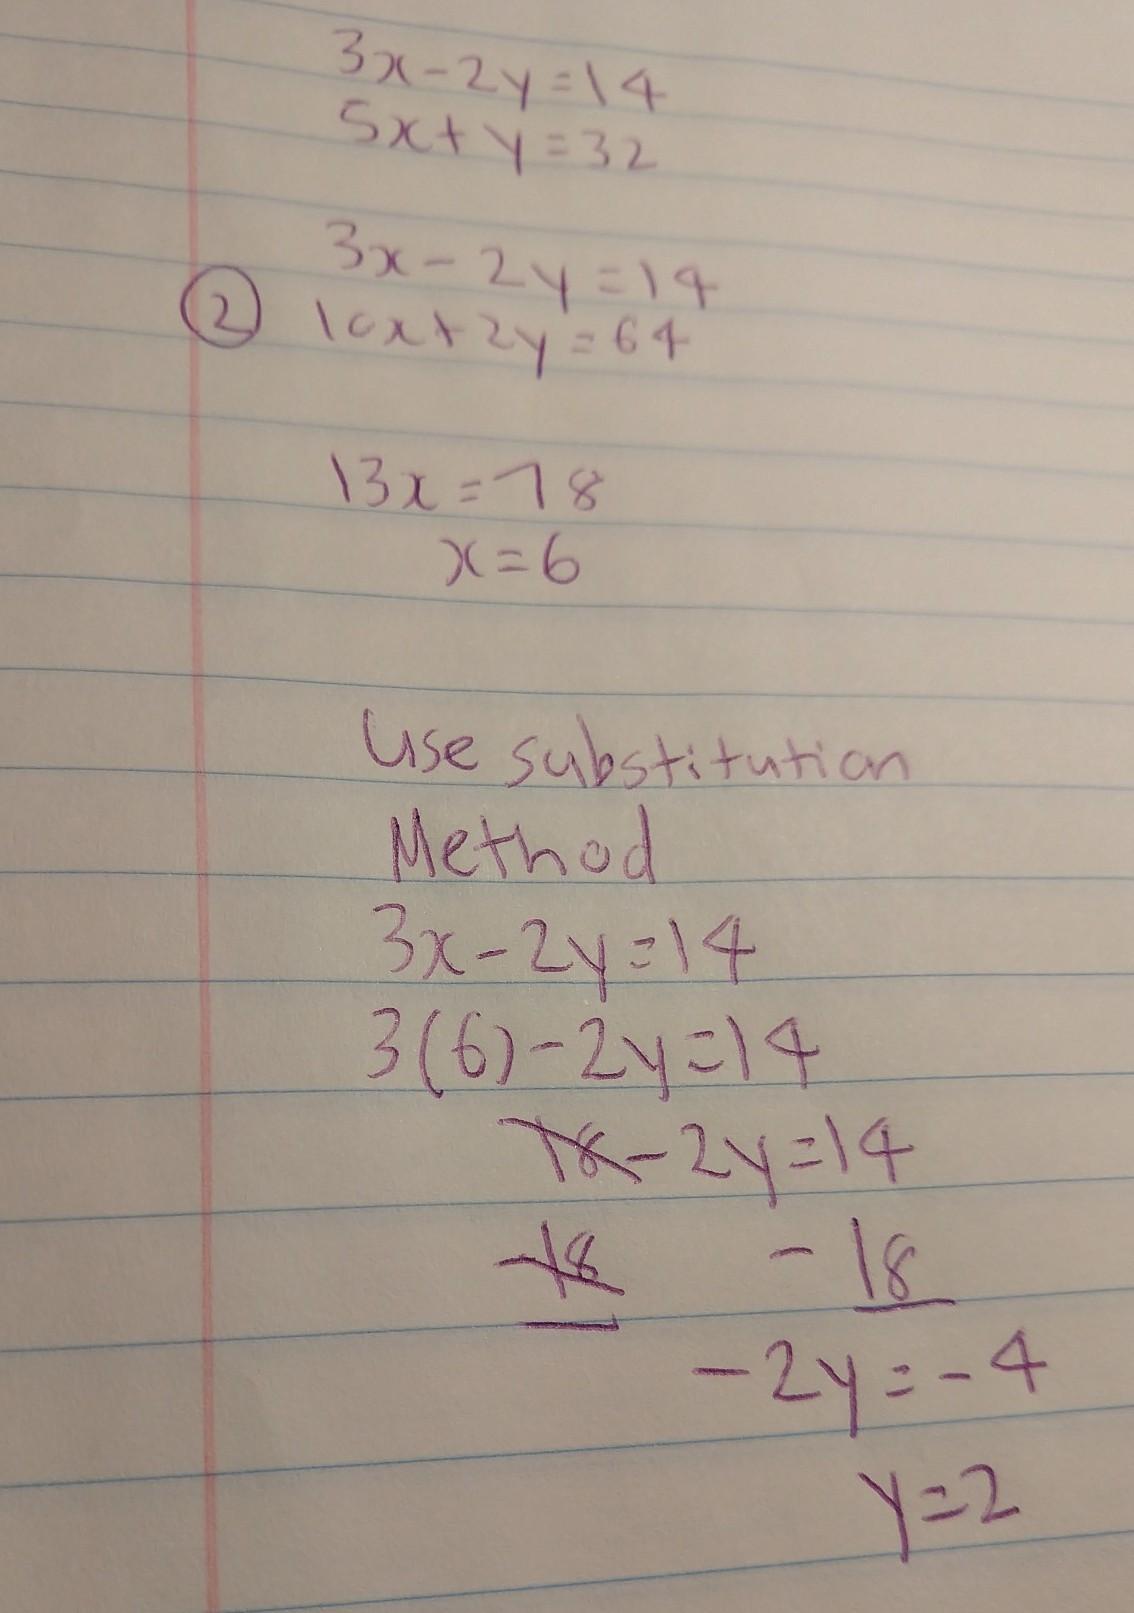 3x-2y=14
5x+y=32
3x-2y=14
② 10x+2y=64
13x=78
x=6
Use substitution
Method
3x-2y=14
3(6)-2y=14
18-2y=14
-18 -18
-2y=-4
y=2